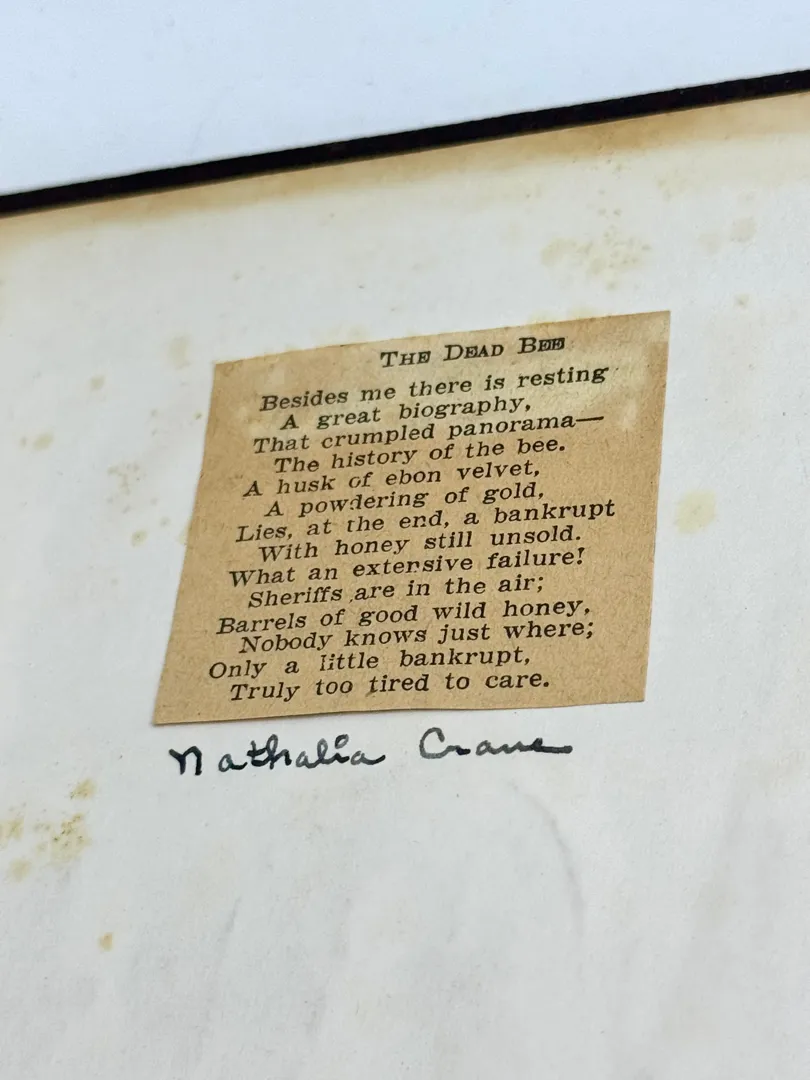 THE DEAD BEE
Besides me there is resting
A great biography,
That crumpled panorama—
The history of the bee.
A husk of ebon velvet,
A powdering of gold,
Lies, at the end, a bankrupt
With honey still unsold.
What an extensive failure!
Sheriffs are in the air;
Barrels of good wild honey,
Nobody knows just where;
Only a little bankrupt,
Truly too tired to care.
Nathalia Crane